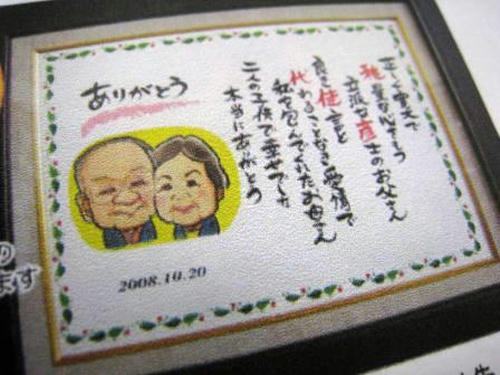 ありがとう
正しく寛大で
な心をもつ
立派な彦士のお父さん
代わることなき愛情で
私を包んでくれたお母さん
二人の子供で幸せでした
本当にありがとう
2008.10.20
の
ます